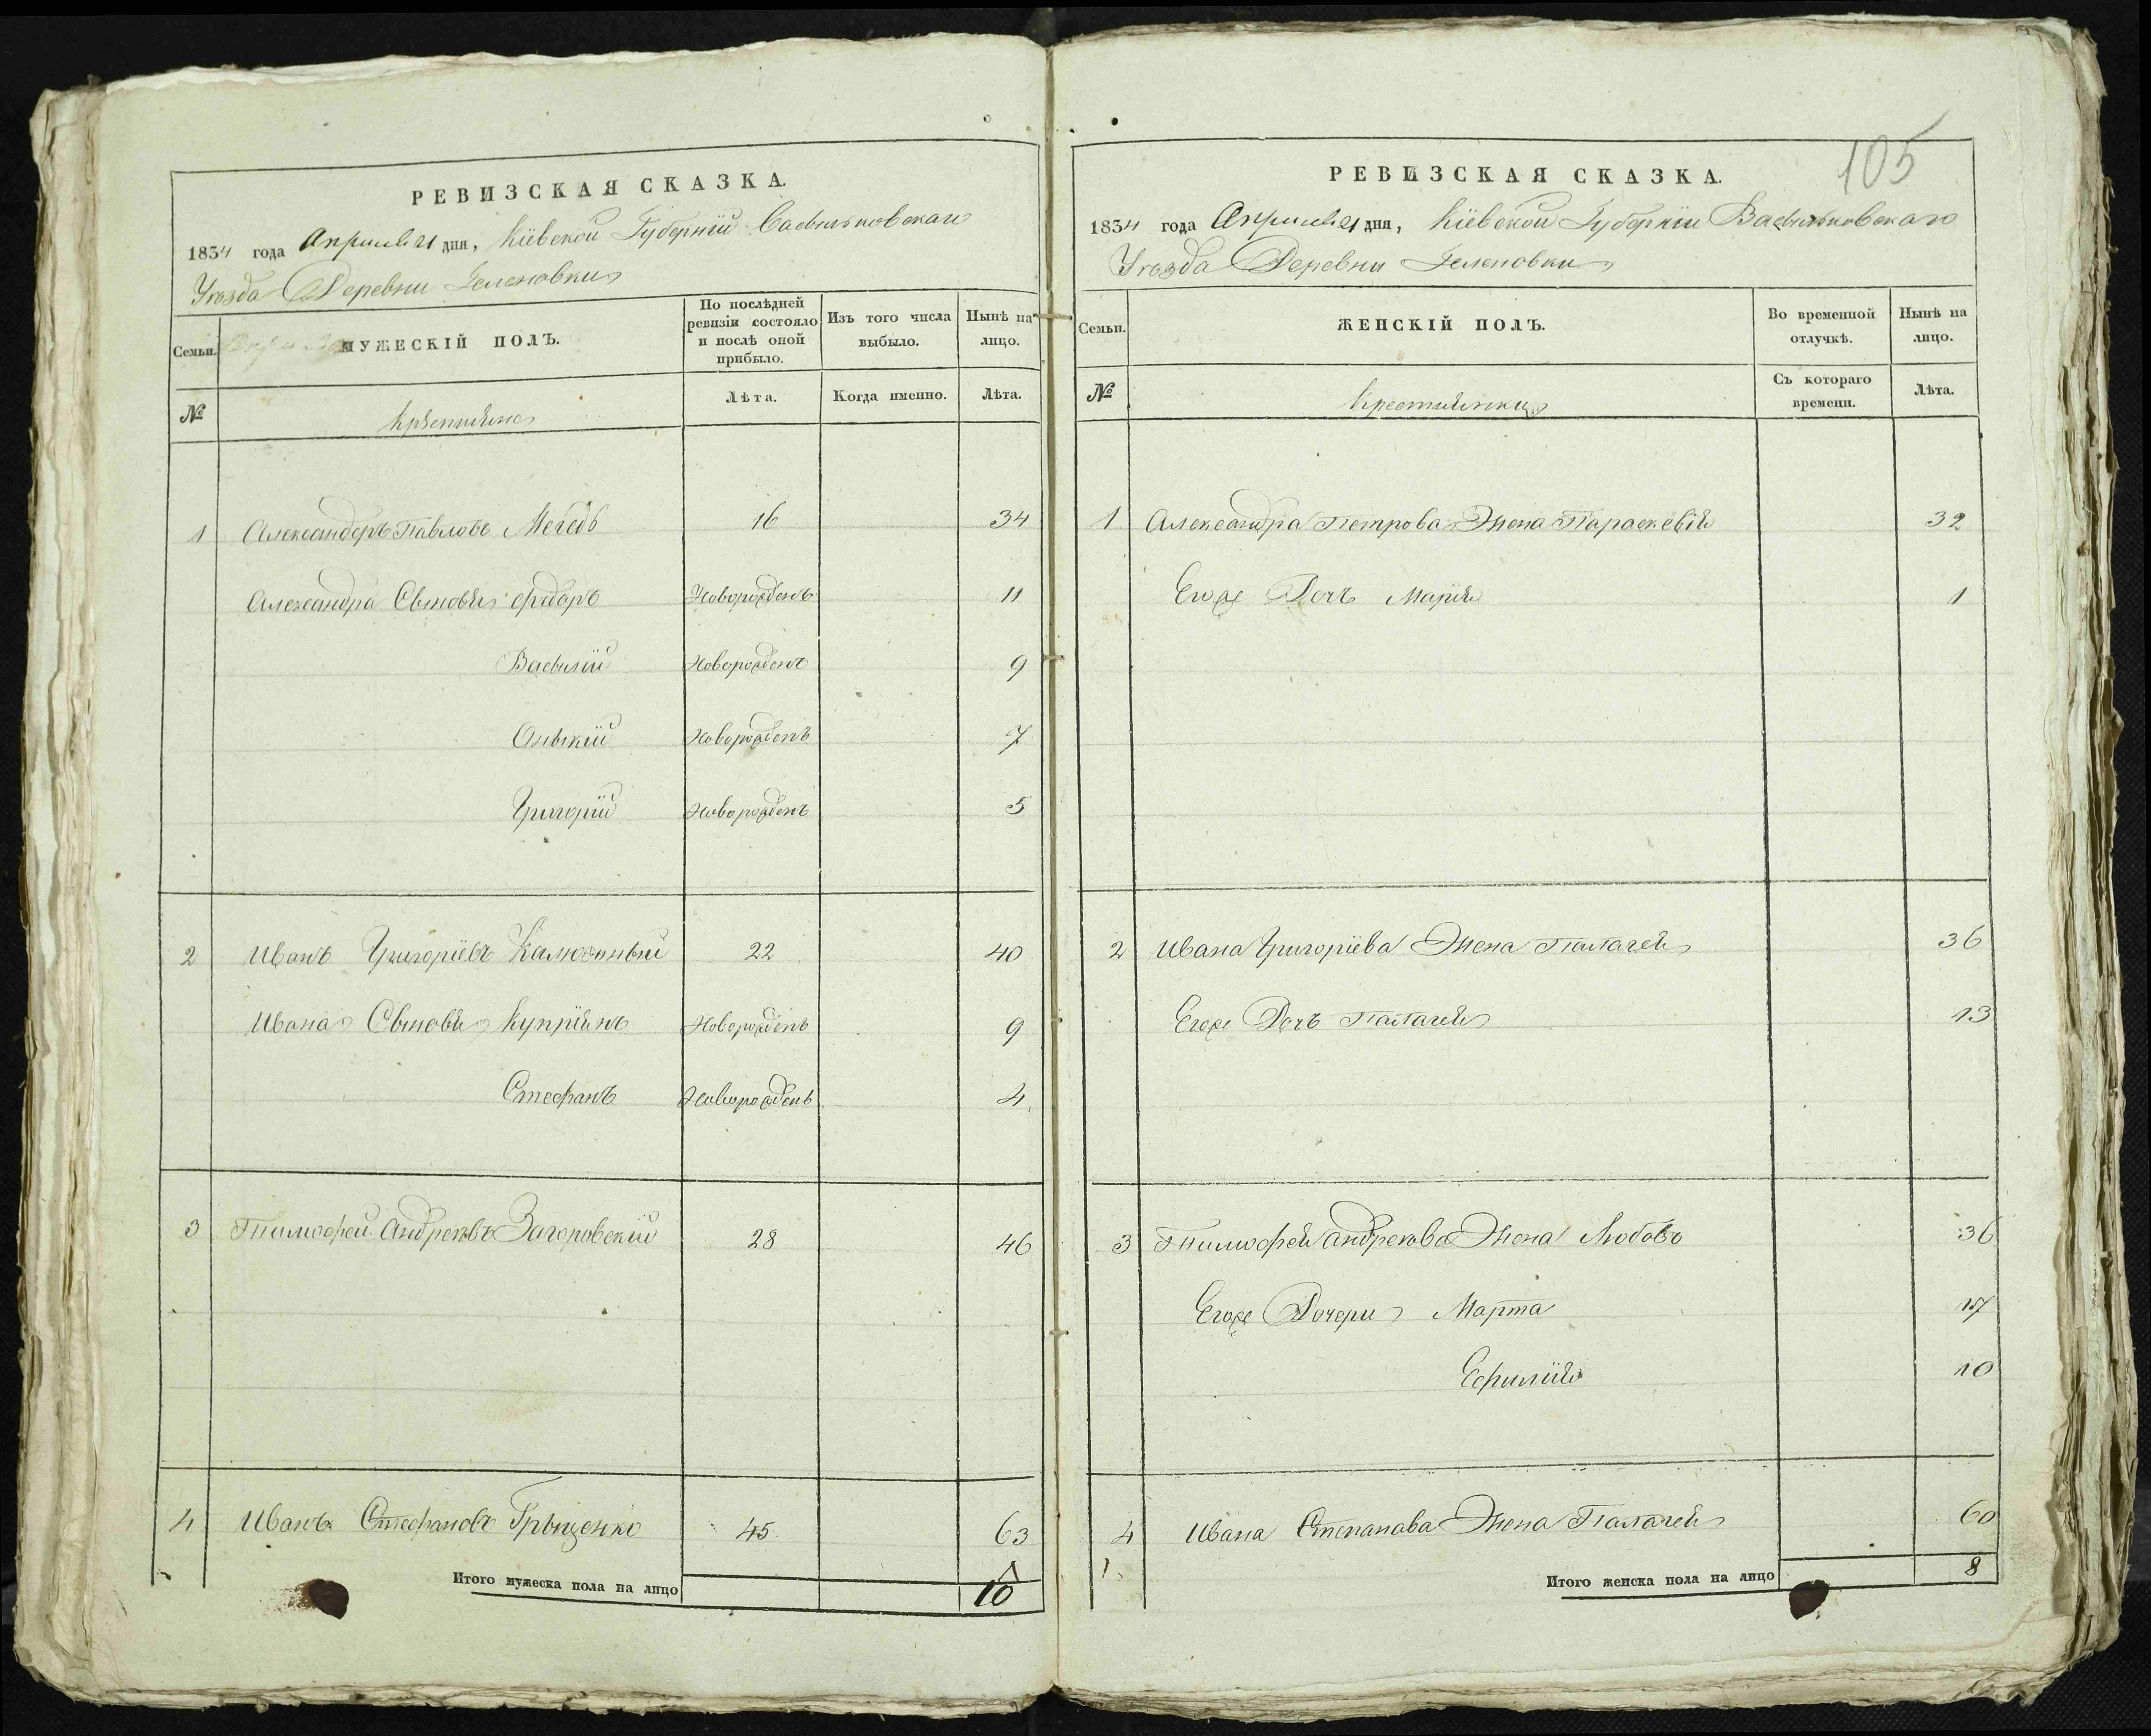 РЕВИЗСКАЯ СКАЗКА.
1834 года Апреля 21 дня, Кіевской Губерніи Васильковскаго
Уѣзда Деревни Геленовки
Семьи.
МУЖЕСКІЙ ПОЛЪ.
По послѣдней ревизіи состояло и послѣ оной прибыло.
Изъ того числа выбыло.
Нынѣ на лицо.
№
Крѣстьяне
Лѣта.
Когда именно.
Лѣта.
1 Александеръ Павловъ Мегедь 16 34
Александра Сыновья Федоръ Новорожденъ 11
Василій Новорожденъ 9
Новорожденъ 7
Григорій Новорожденъ 5
2 Иванъ Григоріевъ Калюжный 22 40
Ивана Сыновья Купріянъ Новорожденъ 9
Стефанъ Новорожденъ 4
3 Тимофей Андреевъ Загоровскій 28 46
4 Иванъ Стефановъ Грыщенко 45 63
Итого мужеска пола на лицо 10
105
РЕВИЗСКАЯ СКАЗКА.
1834 года Апреля 21 дня, Кіевской Губерніи Васильковскаго
Уѣзда Деревни Геленовки
Семьи.
ЖЕНСКІЙ ПОЛЪ.
Во временной отлучкѣ.
Нынѣ на лицо.
№
Крестьянки
Съ котораго времени.
Лѣта.
1 Александра Петрова Жена Параскевія 32
Егоже Дочь Марія 1
2 Ивана Григоріева Жена Палагея 36
Егоже Дочь Палагея 13
3 Тимофея Андреева Жена Любовь 36
Егоже Дочери Марта 17
Ефимія 10
4 Ивана Степанава Жена Палагея 60
Итого женска пола на лицо 8